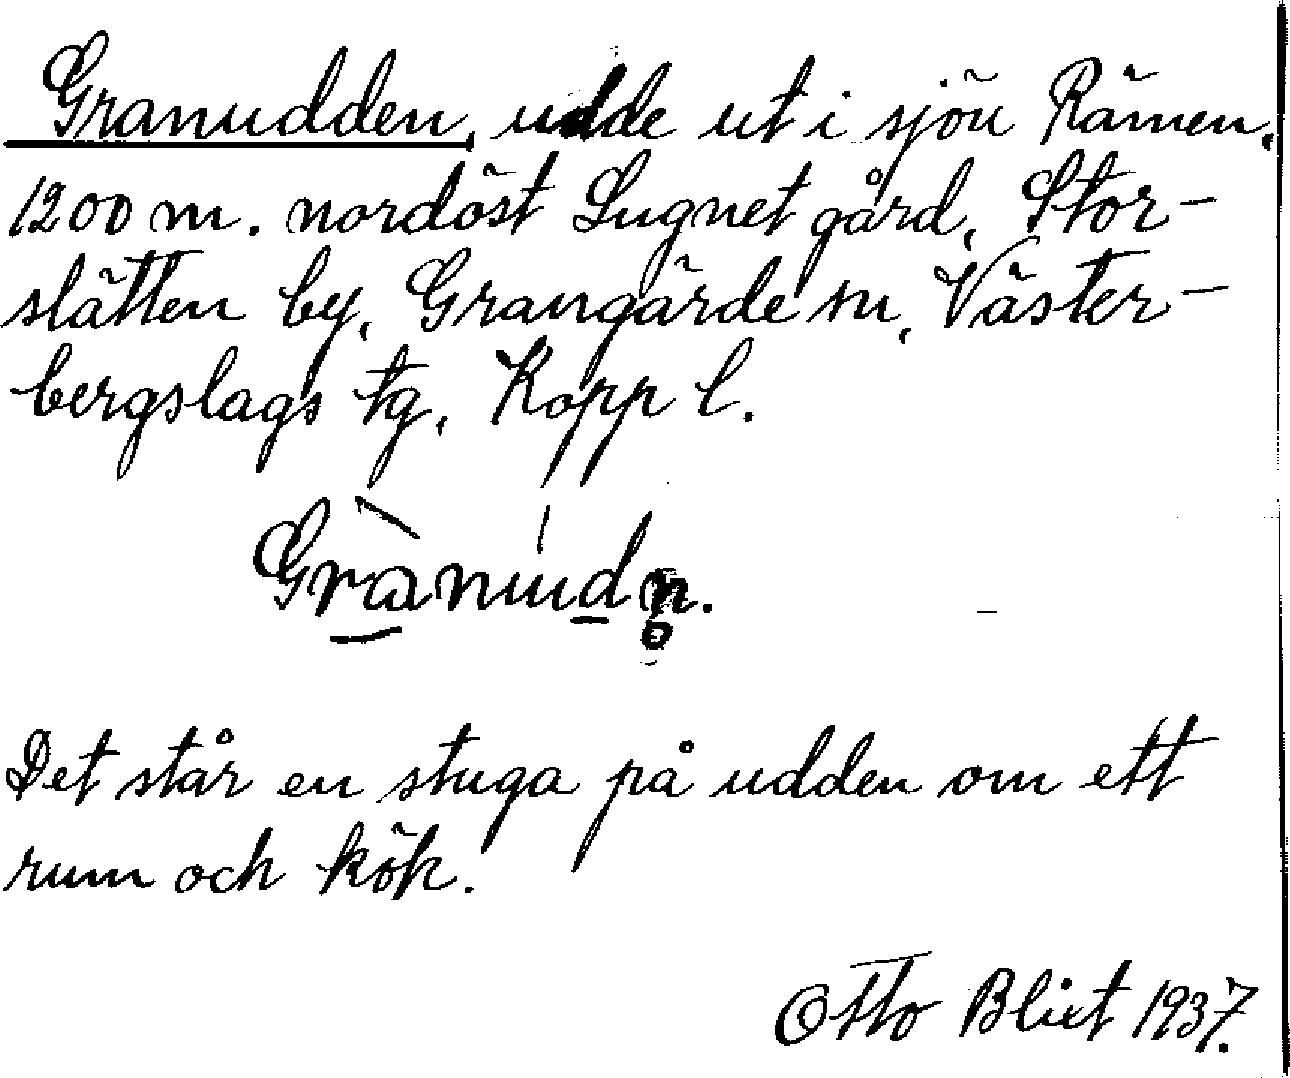 Granudden, udde ut i sjön Rämen,
1200 m. nordöst Lugnet gård, Stor-
slätten by, Grangärde sn, Väster-
bergslags tg, Kopp l.
Grànudn̥.
Det står en stuga på udden om ett
rum och kök.
Otto Blixt 1937.